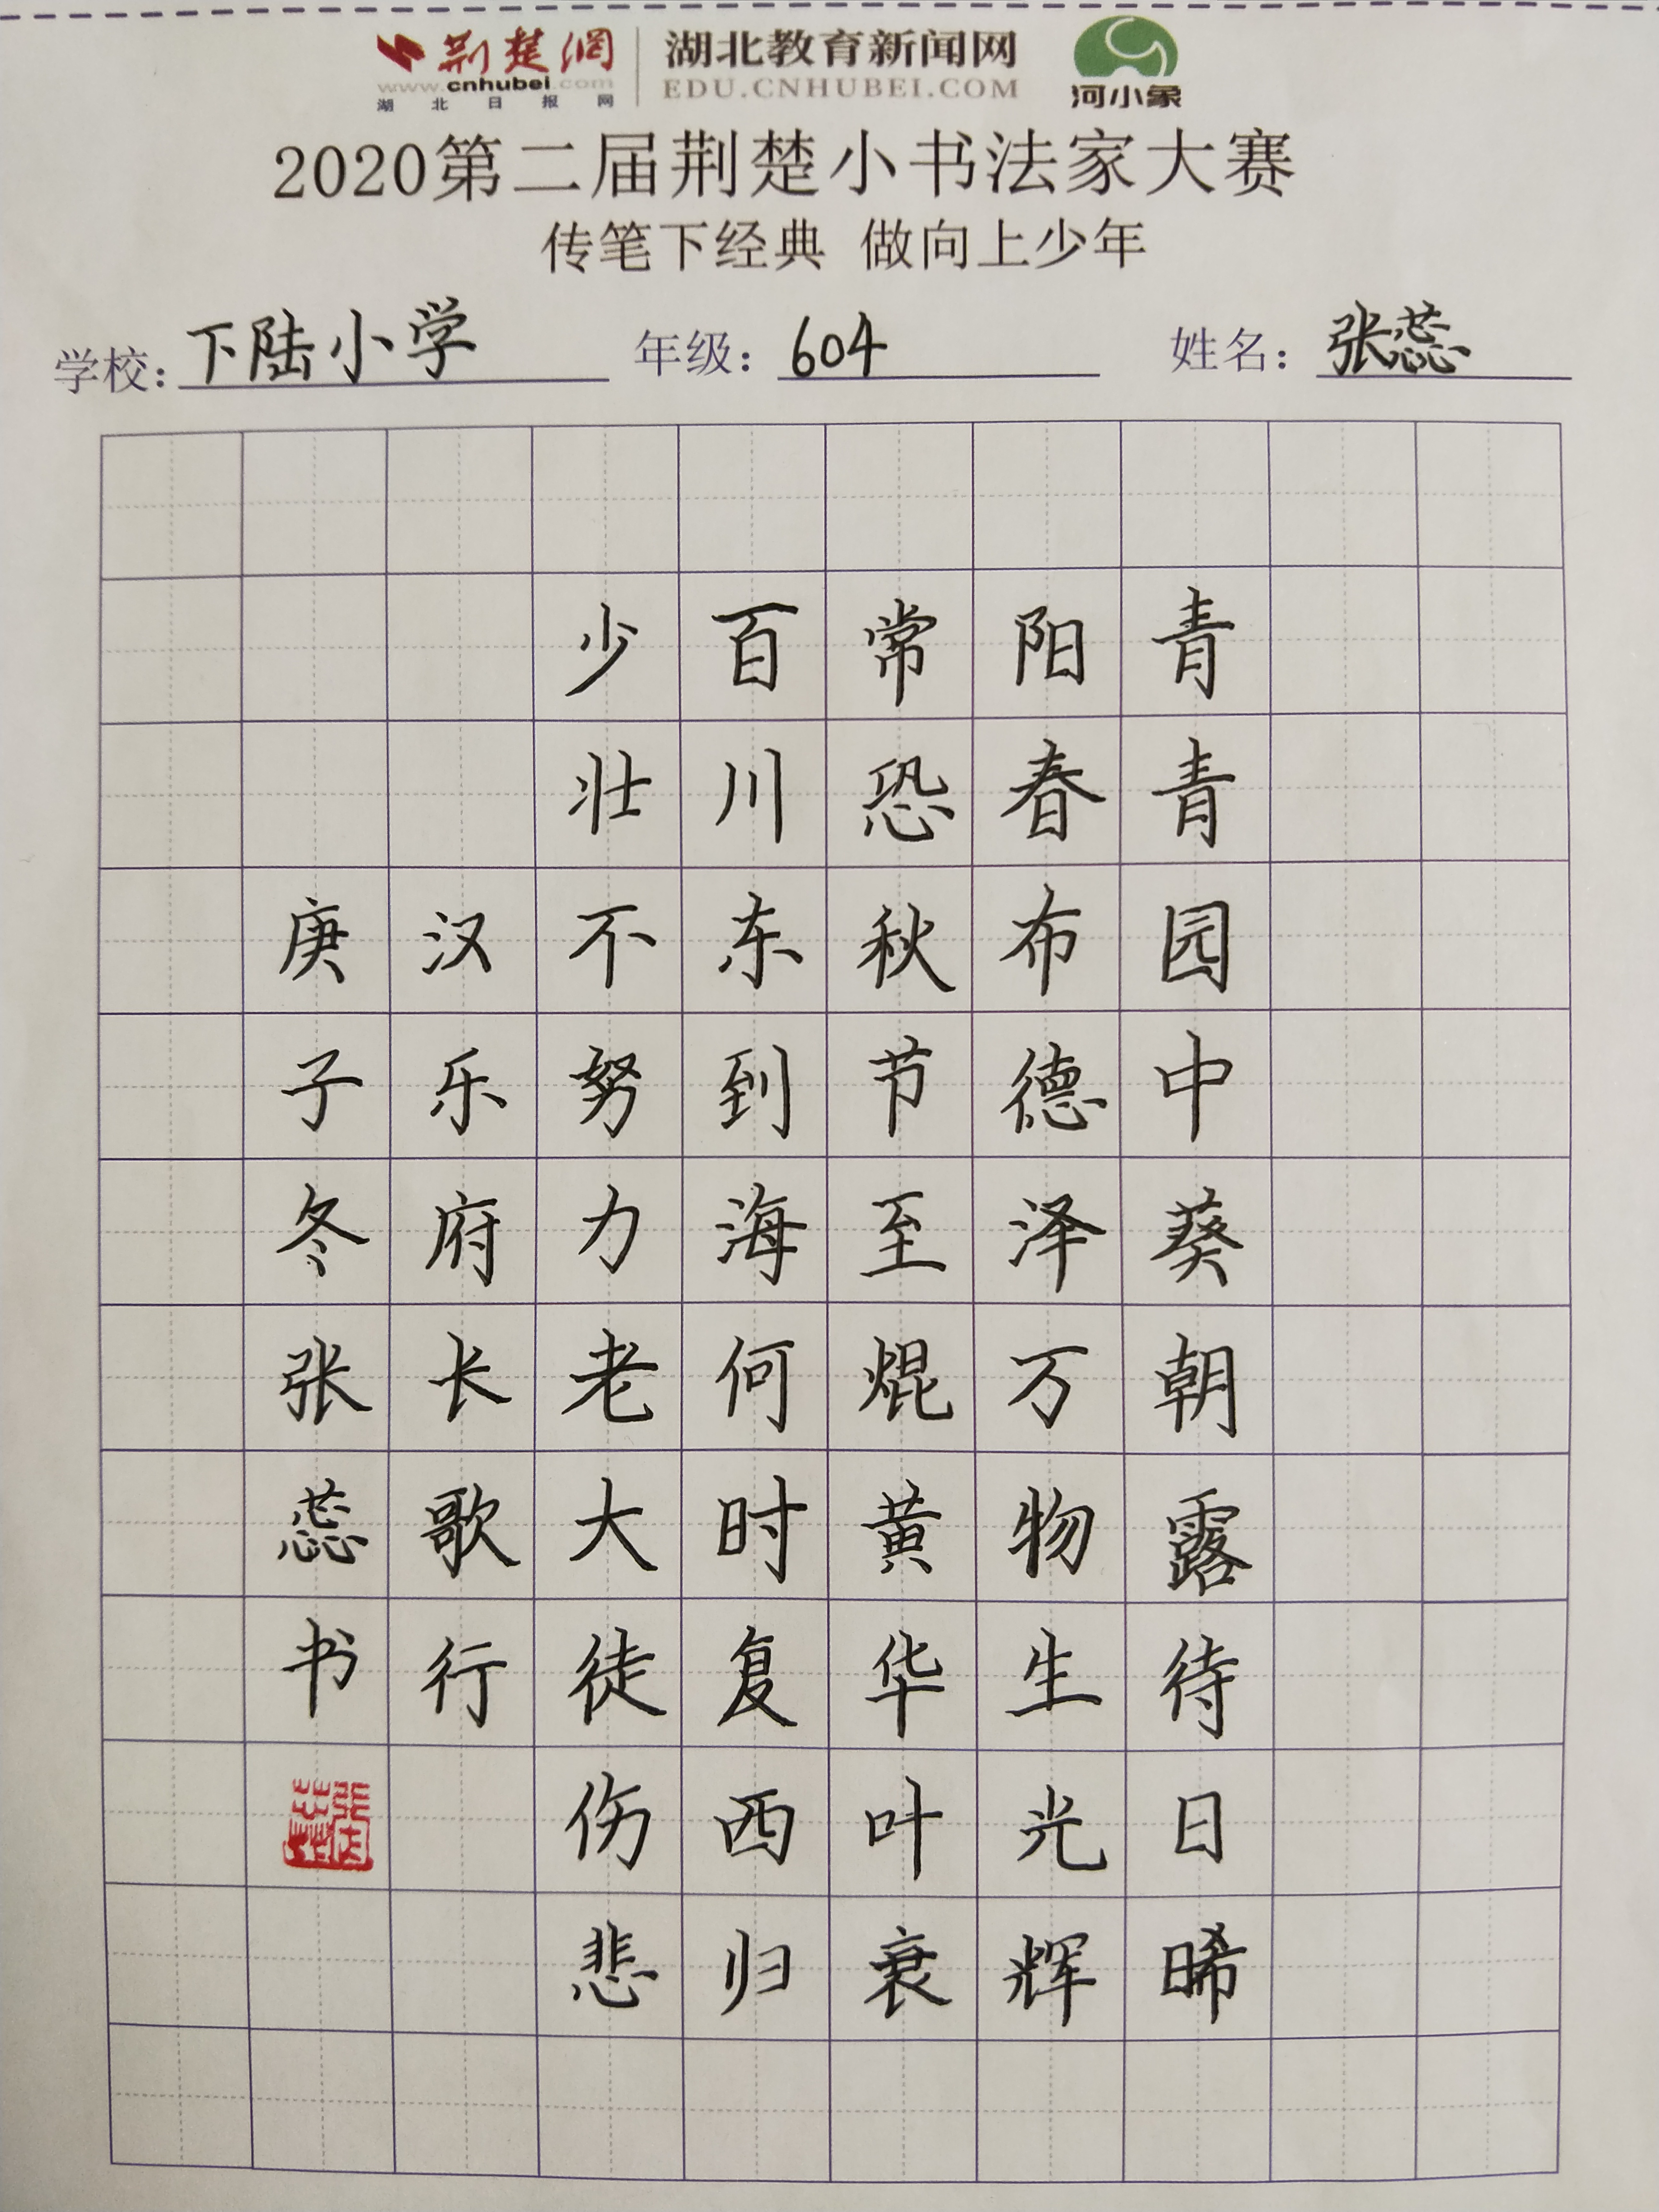 荆楚網 湖北教育新闻网
www.cnhubei.com EDU.CNHUBEI.COM
湖北日报网 河小象
2020第二届荆楚小书法家大赛
传笔下经典 做向上少年
学校：下陆小学 年级：604 姓名：张蕊
青青园中葵朝露待日晞
阳春布德泽万物生光辉
常恐秋节至焜黄华叶衰
百川东到海何时复西归
少壮不努力老大徒伤悲
汉乐府长歌行
庚子冬张蕊书